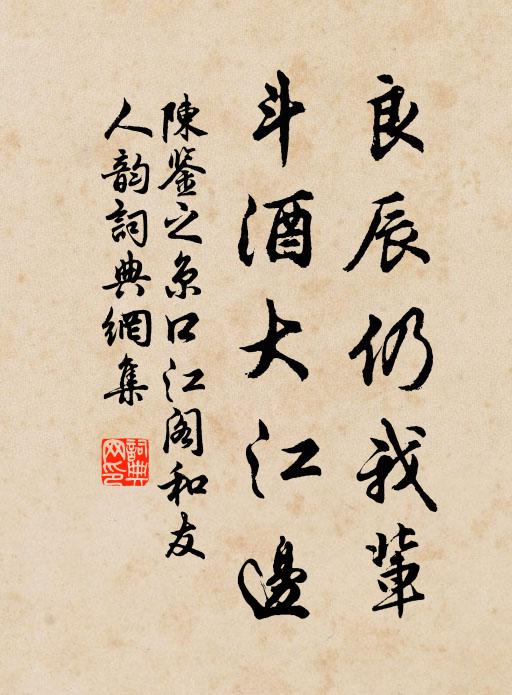 良辰仍我輩
斗酒大江邊
陳鑒之京口江阁和友
人韵詞典網集
詞典网印